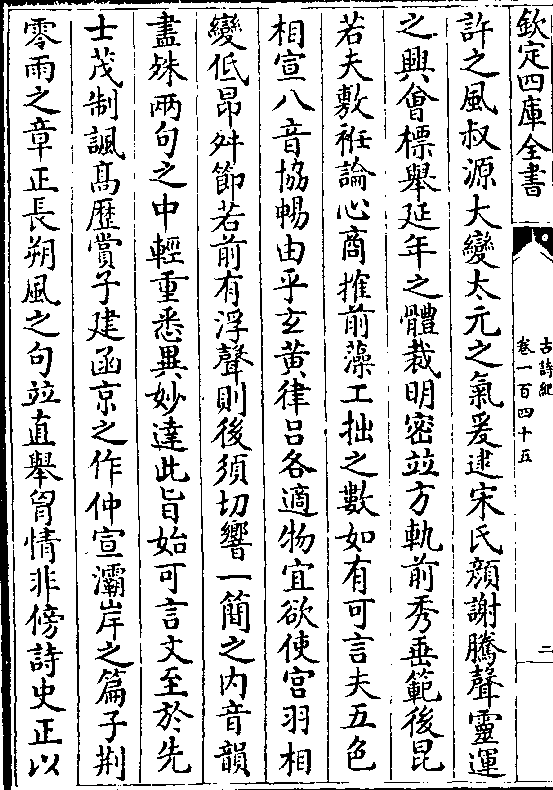 欽定四庫全書
古詩紀
卷一百四十五
二
許之風叔源大變太元之氣爰逮宋氏顔謝騰聲靈運
之興會標舉延年之體裁明密竝方軌前秀垂範後昆
若夫敷袵論心商搉前藻工拙之數如有可言夫五色
相宣八音協暢由乎玄黄律吕各適物宜欲使宫羽相
變低昂舛節若前有浮聲則後須切響一簡之内音韻
盡殊兩句之中輕重悉異妙達此旨始可言文至於先
士茂制諷髙歴賞子建函京之作仲宣灞岸之篇子荆
零雨之章正長朔風之句竝直舉胷情非傍詩史正以